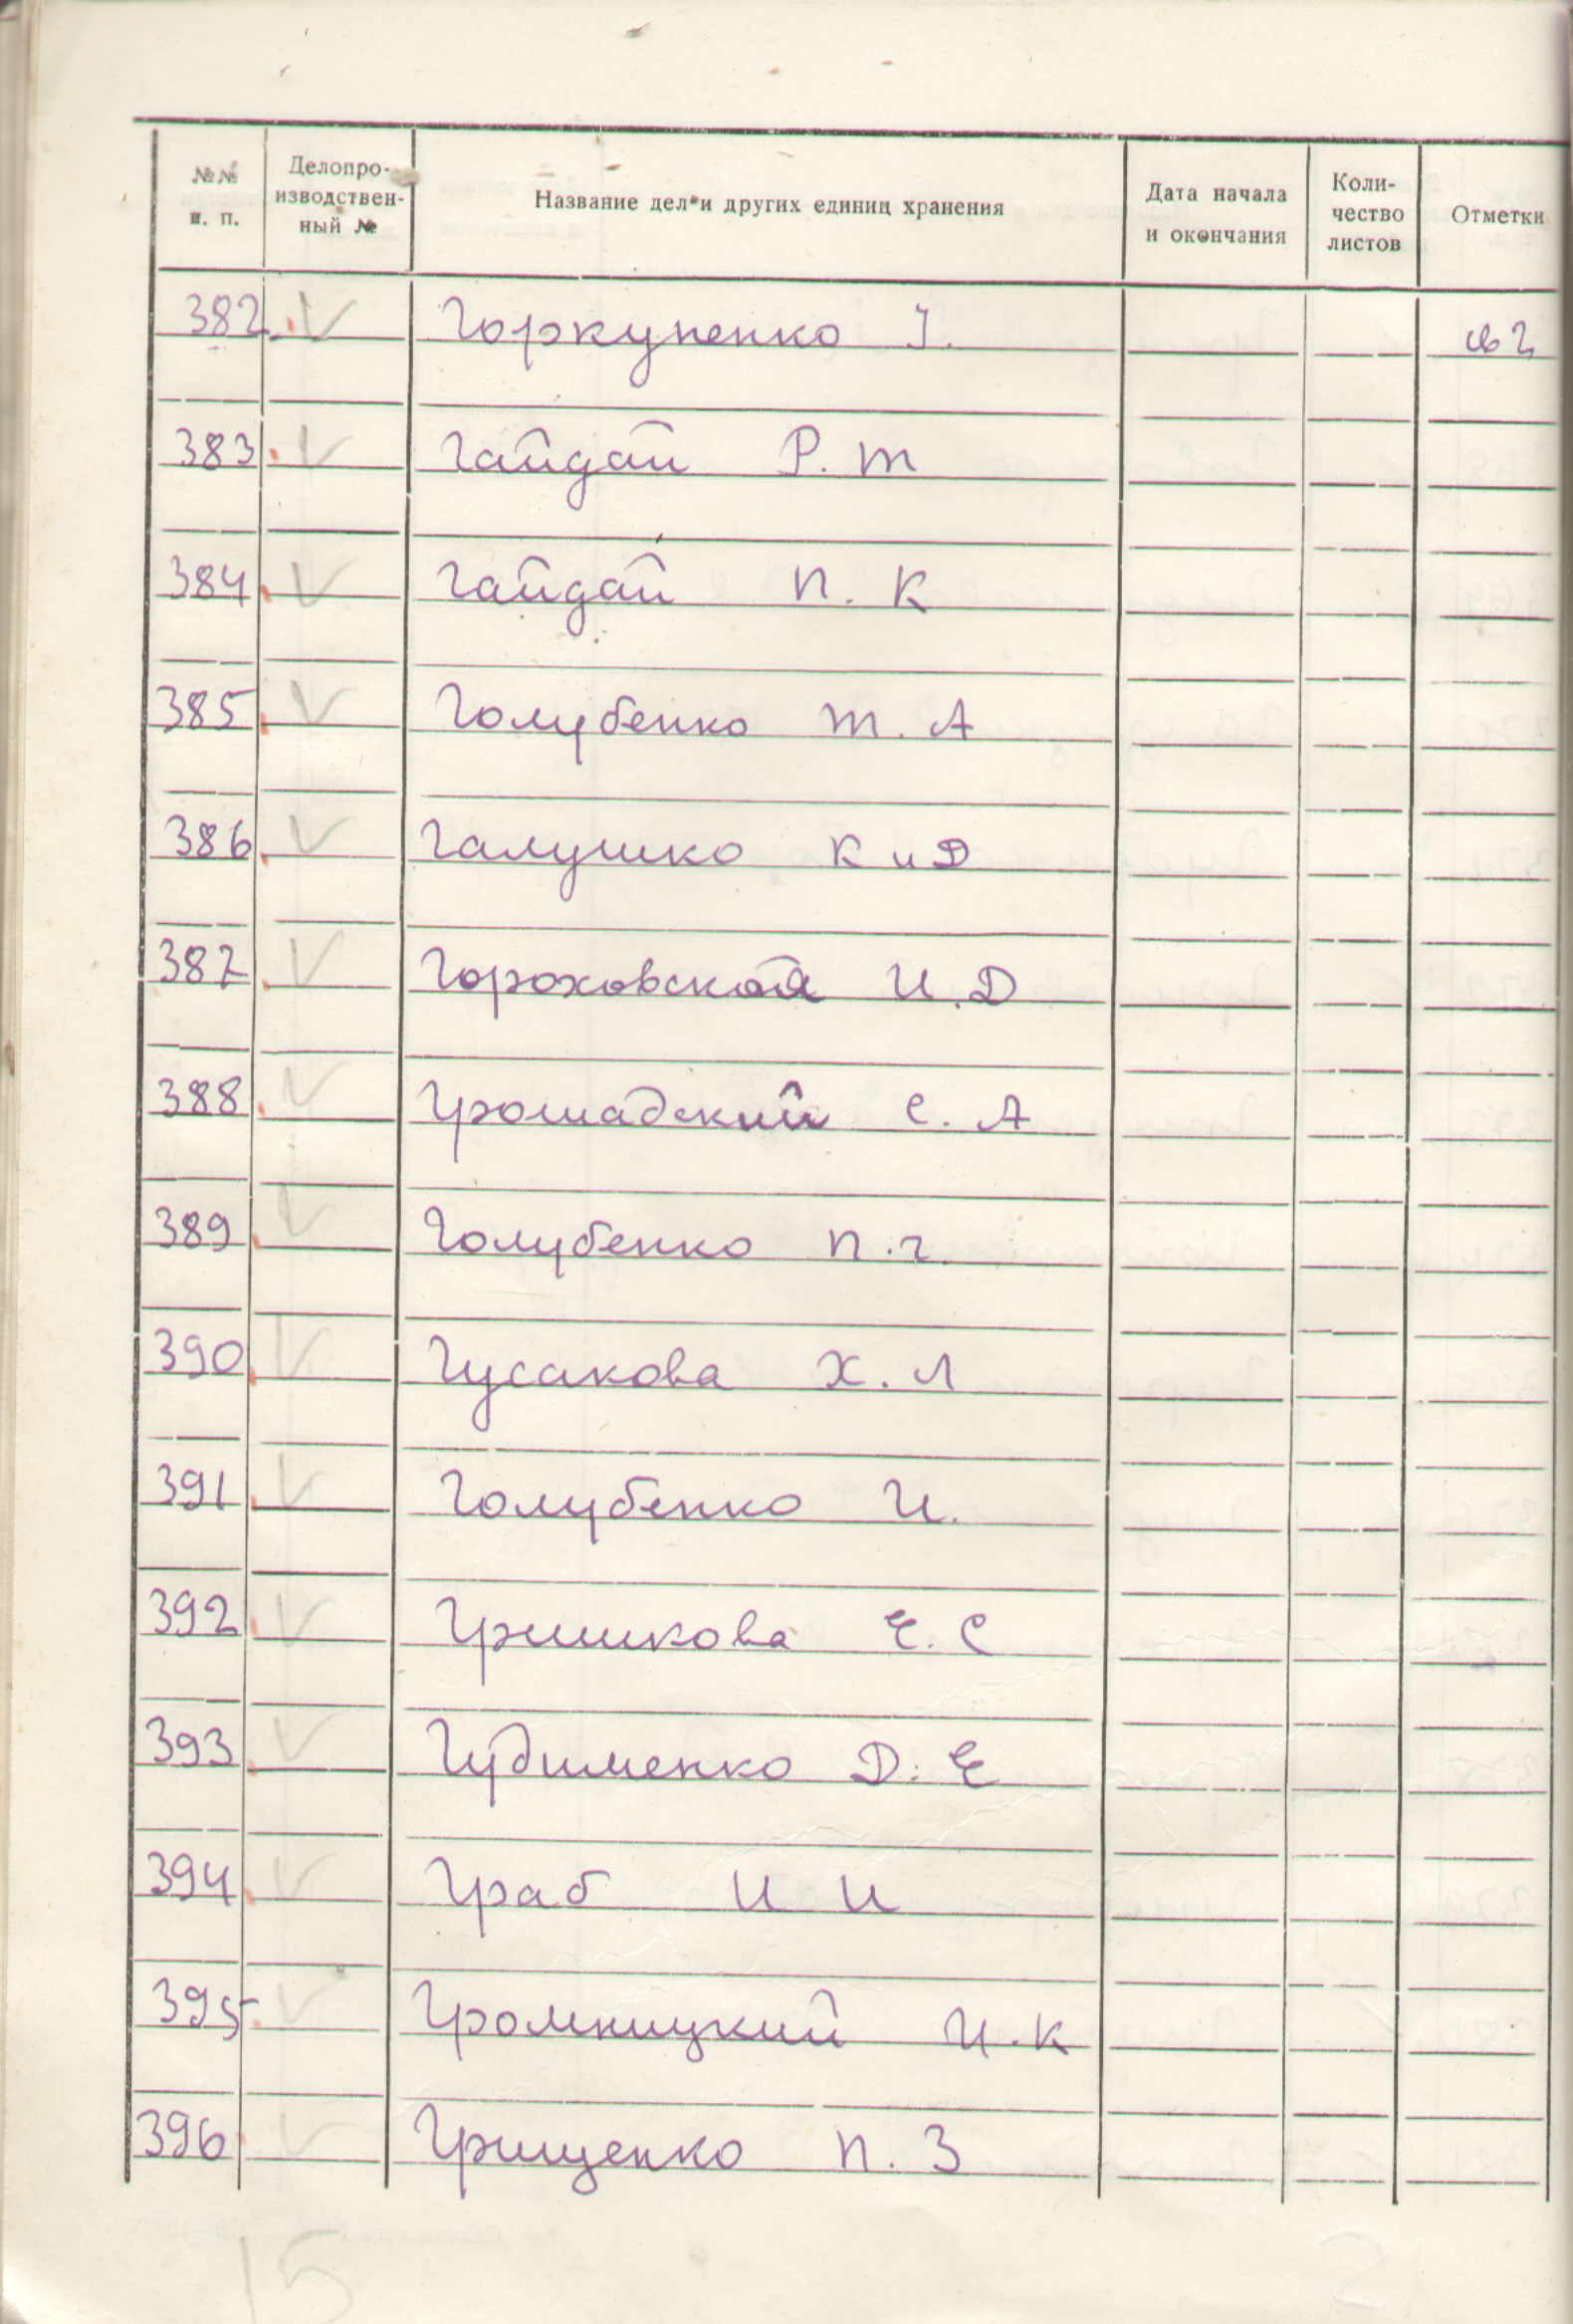 №№ п. п. Делопроизводственный № Название дел и других единиц хранения Дата начала и окончания Количество листов Отметки
382. V Горкупенко І. св 2
383. V Гайдай Р. Т
384. V Гайдай П. К
385. V Голубенко Т. А
386. V Галушко К и Д
387. V Гороховская И. Д
388. V Громадский С. А
389. V Голубенко П. Г.
390. V Гусакова Х. Л
391. V Голубенко И.
392. V Гришкова Е. С
393. V Гудименко Д. Е
394. V Граб И И
395. V Громницкий И. К
396. V Грищенко П. З
15